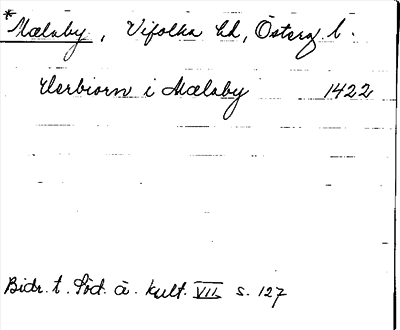 *Mælaby, Vifolka hd, Österg. l.
Verbiorn i Mælaby 1422
Bidr. t. Söd. å. kult. VII s. 127